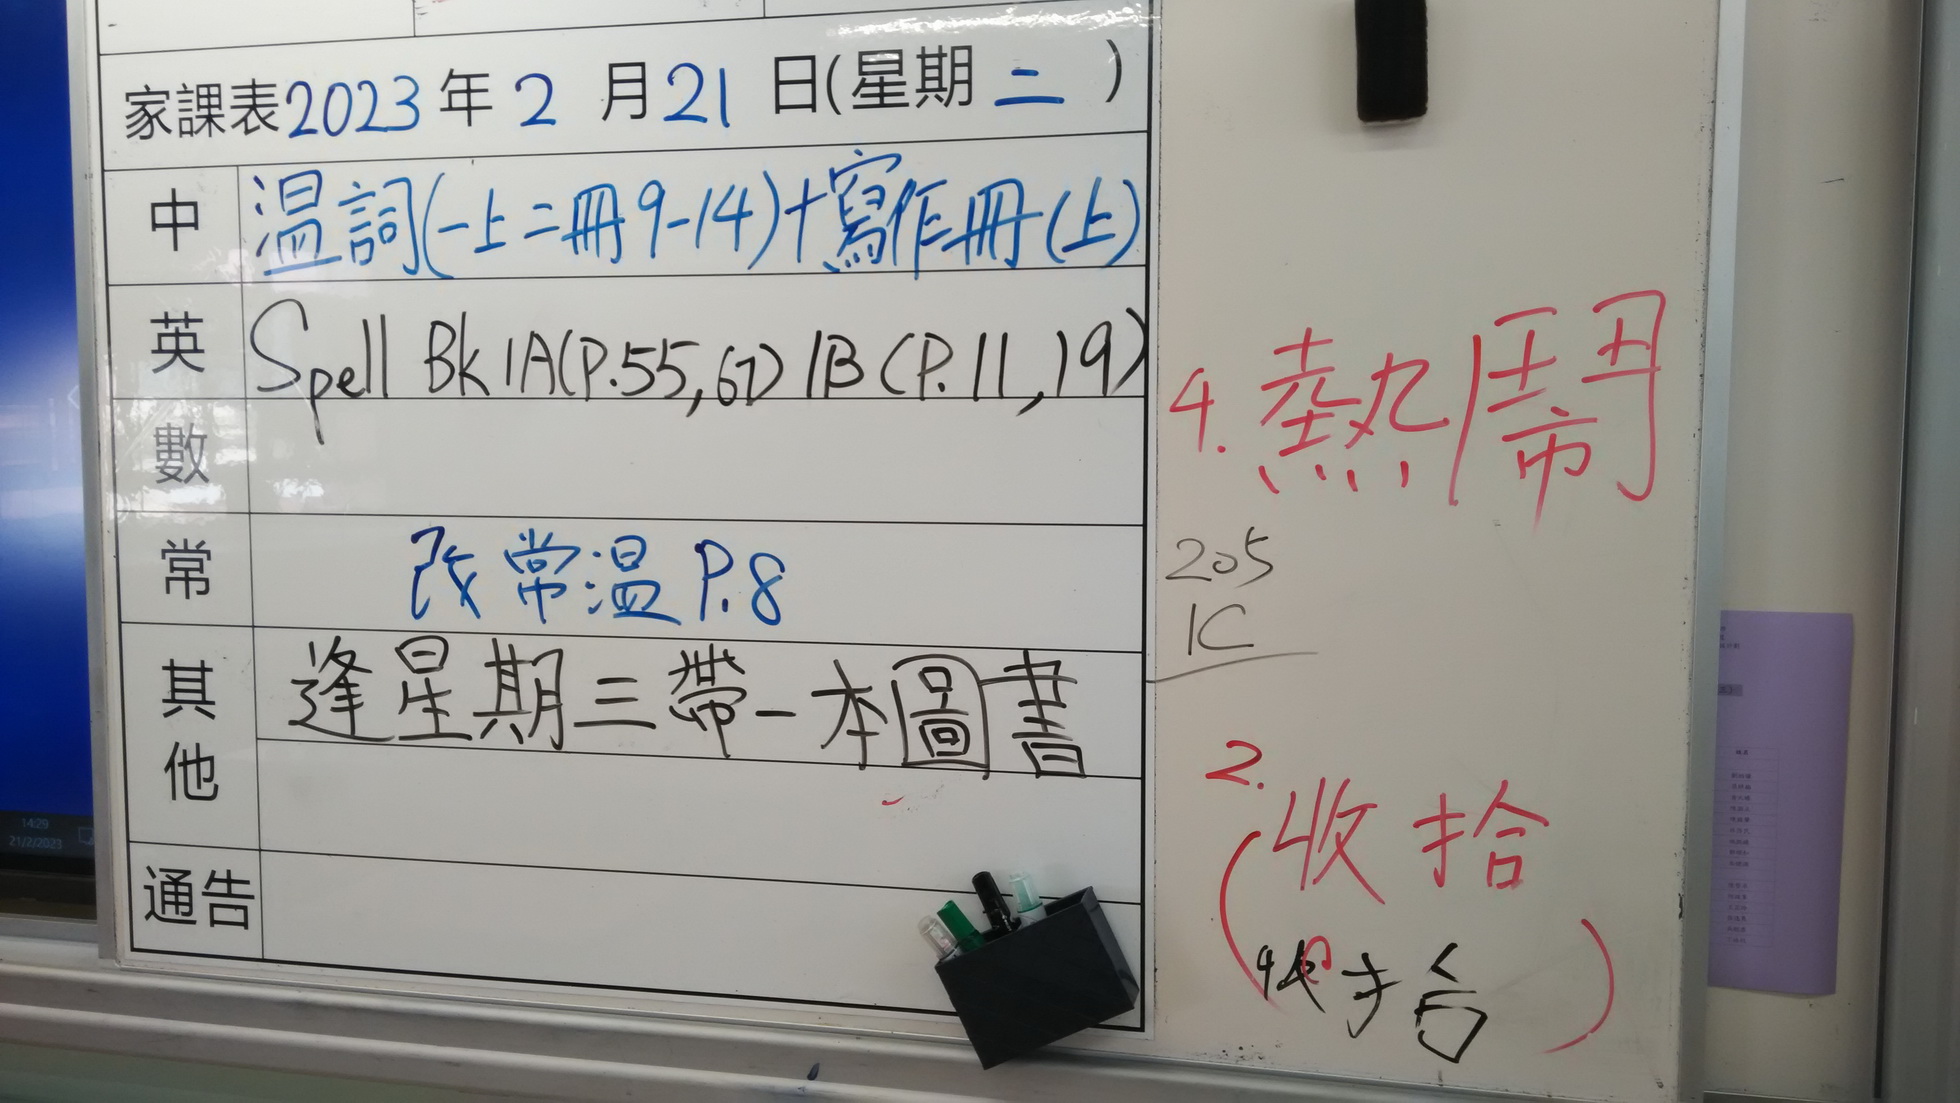 家課表2023年2月21日(星期二)
中 温詞(一上二冊9-14)+寫作冊(上)
英 Spell Bk 1A(P.55,67) 1B(P.11,19)
數
常 改常温P.8
其他 逢星期三帶一本圖書
通告
4. 熱鬧
205
1C
2. 收拾
14:29
21/2/2023